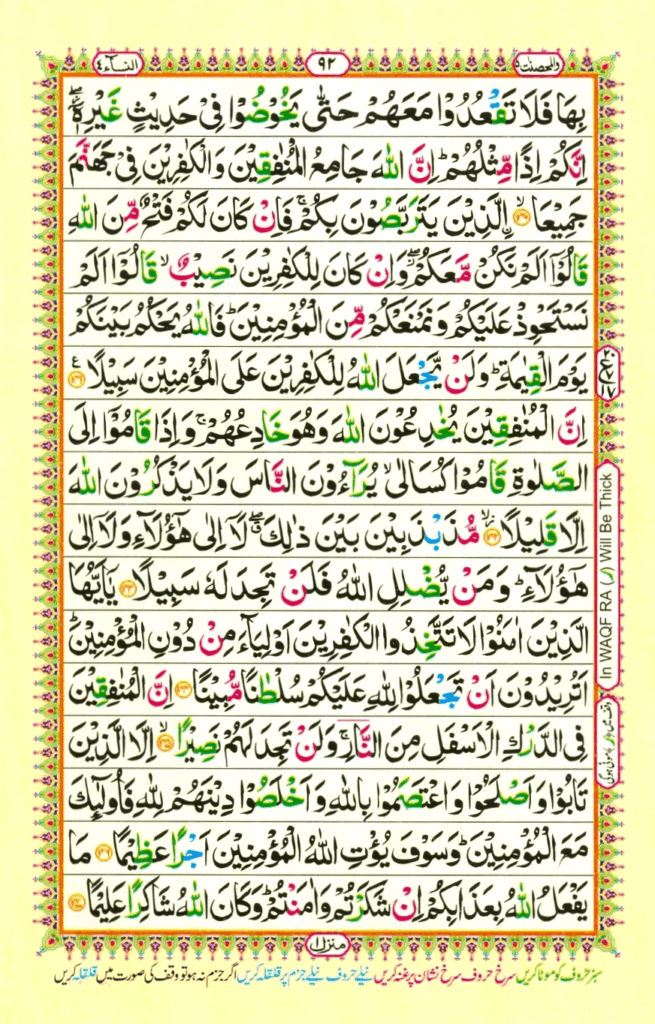 والمحصنت ٥
٩٢
النسآء ٤
بِهَا فَلَا تَقْعُدُوْا مَعَهُمْ حَتّٰى يَخُوْضُوْا فِيْ حَدِيْثٍ غَيْرِهٖٓ ۖ
اِنَّكُمْ اِذًا مِّثْلُهُمْ ؕ اِنَّ اللّٰهَ جَامِعُ الْمُنٰفِقِيْنَ وَالْكٰفِرِيْنَ فِيْ جَهَنَّمَ
جَمِيْعَا ۙ﴿۱۴۰﴾ الَّذِيْنَ يَتَرَبَّصُوْنَ بِكُمْ ۚ فَاِنْ كَانَ لَكُمْ فَتْحٌ مِّنَ اللّٰهِ
قَالُوْٓا اَلَمْ نَكُنْ مَّعَكُمْ ۖ وَاِنْ كَانَ لِلْكٰفِرِيْنَ نَصِيْبٌ ۙ قَالُوْٓا اَلَمْ
نَسْتَحْوِذْ عَلَيْكُمْ وَنَمْنَعْكُمْ مِّنَ الْمُؤْمِنِيْنَ ؕ فَاللّٰهُ يَحْكُمُ بَيْنَكُمْ
يَوْمَ الْقِيٰمَةِ ؕ وَلَنْ يَّجْعَلَ اللّٰهُ لِلْكٰفِرِيْنَ عَلَى الْمُؤْمِنِيْنَ سَبِيْلًا ﴿۱۴۱﴾ ع
اِنَّ الْمُنٰفِقِيْنَ يُخٰدِعُوْنَ اللّٰهَ وَهُوَ خَادِعُهُمْ ۚ وَاِذَا قَامُوْٓا اِلَى
الصَّلٰوةِ قَامُوْا كُسَالٰى ۙ يُرَآءُوْنَ النَّاسَ وَلَا يَذْكُرُوْنَ اللّٰهَ
اِلَّا قَلِيْلًا ﴿۱۴۲﴾ مُّذَبْذَبِيْنَ بَيْنَ ذٰلِكَ ۖ لَآ اِلٰى هٰٓؤُلَآءِ وَلَآ اِلٰى
هٰٓؤُلَآءِ ؕ وَمَنْ يُّضْلِلِ اللّٰهُ فَلَنْ تَجِدَ لَهٗ سَبِيْلًا ﴿۱۴۳﴾ يٰٓاَيُّهَا
الَّذِيْنَ اٰمَنُوْا لَا تَتَّخِذُوا الْكٰفِرِيْنَ اَوْلِيَآءَ مِنْ دُوْنِ الْمُؤْمِنِيْنَ ؕ
اَتُرِيْدُوْنَ اَنْ تَجْعَلُوْا لِلّٰهِ عَلَيْكُمْ سُلْطٰنًا مُّبِيْنًا ﴿۱۴۴﴾ اِنَّ الْمُنٰفِقِيْنَ
فِي الدَّرْكِ الْاَسْفَلِ مِنَ النَّارِ ۚ وَلَنْ تَجِدَ لَهُمْ نَصِيْرًا ۙ﴿۱۴۵﴾ اِلَّا الَّذِيْنَ
تَابُوْا وَاَصْلَحُوْا وَاعْتَصَمُوْا بِاللّٰهِ وَاَخْلَصُوْا دِيْنَهُمْ لِلّٰهِ فَاُولٰٓئِكَ
مَعَ الْمُؤْمِنِيْنَ ؕ وَسَوْفَ يُؤْتِ اللّٰهُ الْمُؤْمِنِيْنَ اَجْرًا عَظِيْمًا ﴿۱۴۶﴾ مَا
يَفْعَلُ اللّٰهُ بِعَذَابِكُمْ اِنْ شَكَرْتُمْ وَاٰمَنْتُمْ ؕ وَكَانَ اللّٰهُ شَاكِرًا عَلِيْمًا ﴿۱۴۷﴾
In WAQF RA (ر) Will Be Thick
منزل ١
سبز حروف کو موٹا کریں سرخ حروف سرخ نشان پر غنہ کریں نیلے حروف نیلے جزم پر قلقلہ کریں اگر جزم نہ ہو تو وقف کی صورت میں قلقلہ کریں